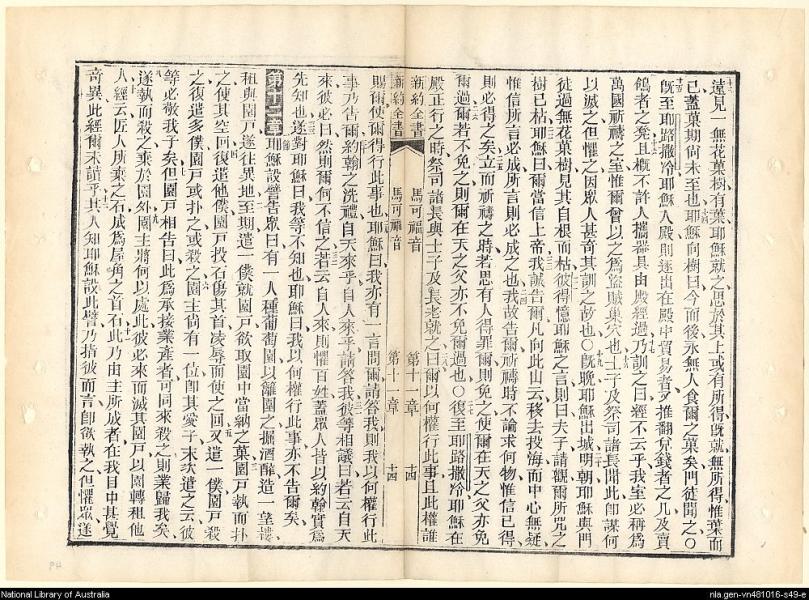 遠見一無花菓樹有葉耶穌就之思於其上或有所得旣就無所得惟葉而
己蓋菓期尚未至也耶穌向樹曰今而後永無人食爾之菓矣門徒聞之〇
旣至耶路撒冷耶穌入殿則逐出在殿中貿易者又推翻兌錢者之几及賣
鴿者之凳且槪不許人攜器具由殿經過乃訓之曰經不云乎我室必稱爲
萬國祈禱之室惟爾曹以之爲盜賊巢穴也士子及祭司諸長聞此卽謀何
以滅之但懼之因衆人甚奇其訓之故也〇旣晚耶穌出城明朝耶穌與門
徒過無花菓樹見其自根而枯彼得憶耶穌之言則曰夫子請觀爾所咒之
樹已枯耶穌曰爾當信上帝我誠告爾凡向此山云移去投海而中心無疑
惟信所言必成所言則必成之也我故告爾祈禱時不論求何物惟信已得
則必得之矣立而祈禱之時若思有人得罪爾則免之使爾在天之父亦免
爾過爾若不免之則爾在天之父亦不免爾過也〇復至耶路撒冷耶穌在
殿正行之時祭司諸長與士子及長老就之曰爾以何權行此事且此權誰
新約全書 馬可福音 第十一章 十四
新約全書 馬可福音 第十一章 十四
賜爾使爾得行此事也耶穌曰我亦有一言問爾請答我則我以何權行此
事乃告爾約翰之洗禮自天來乎自人來乎請答我彼等相議曰若云自天
來彼必曰然則爾何不信之若云自人來則懼百姓蓋衆人皆以約翰實爲
先知也遂對耶穌曰我等不知也耶穌曰我以何權行此事亦不告爾矣
第十二章 耶穌設譬告衆曰有一人種葡萄園以籬園之掘酒醡造一望樓
租與園戶遂往異地至期遣一僕就園戶欲取園中當納之菓園戶執而扑
之使其空回復遣他僕園戶投石傷其首凌辱而使之回又遣一僕園戶殺
之復遣多僕園戶或扑之或殺之園主尚有一位卽其愛子末次遣之云彼
等必敬我子矣但園戶相告曰此爲承接業產者可同來殺之則業歸我矣
遂執而殺之棄於園外園主將何以處此彼必來而滅其園戶以園轉租他
人經云匠人所棄之石成爲屋角之首石此乃由主所成者在我目中甚覺
奇異此經爾未讀乎其人知耶穌設此譬乃指彼而言卽欲執之但懼衆遂
National Library of Australia
nla.gen-vn481016-s49-e